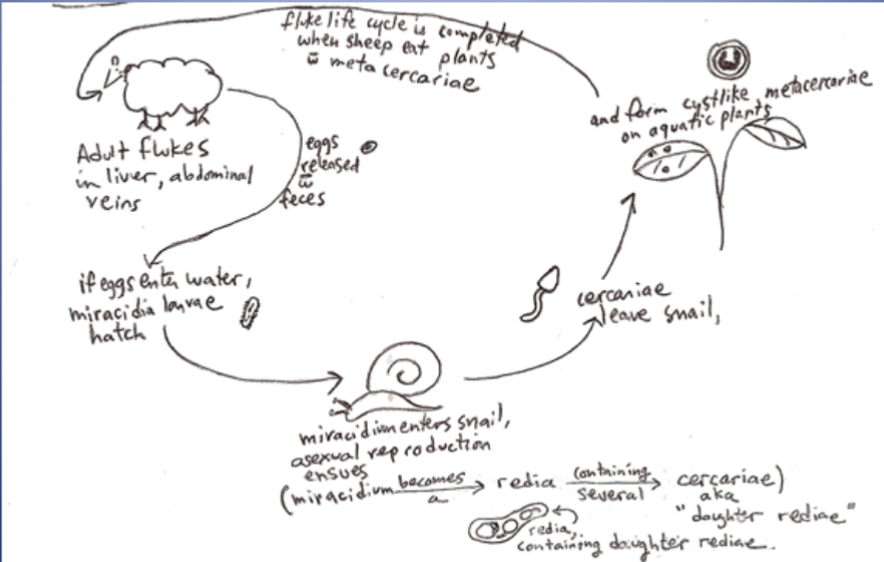 fluke life cycle is completed
when sheep eat plants
w̄ metacercariae
and form cystlike metacercariae
on aquatic plants
Adult flukes
in liver, abdominal
veins
eggs
released
w̄
feces
if eggs enter water,
miracidia larvae
hatch
cercariae
leave snail,
miracidium enters snail,
asexual reproduction
ensues
(miracidium becomes a → redia containing several → cercariae)
aka
"daughter rediae"
redia,
containing daughter rediae.